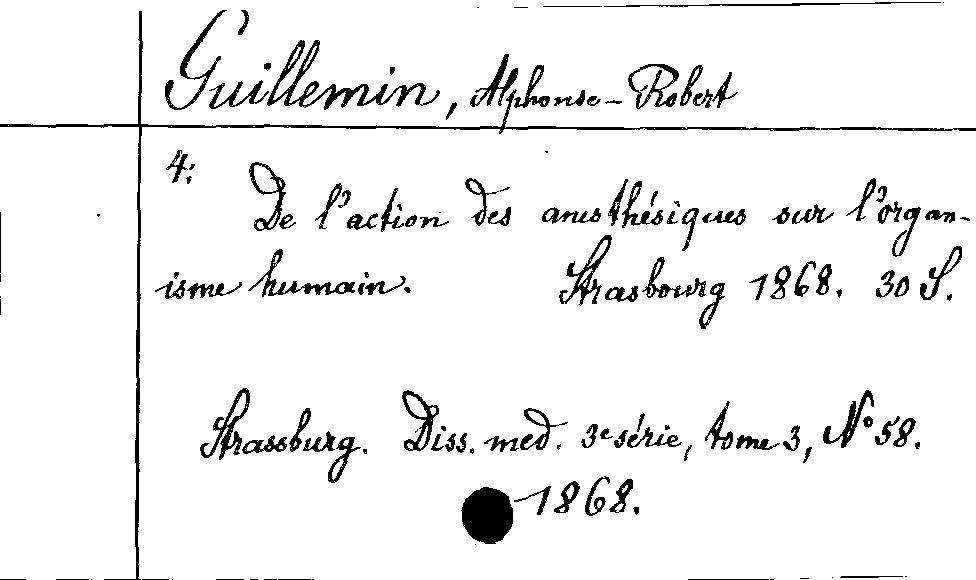 Guillemin, Alphonse-Robert
4:
De l'action des anesthésiques sur l'organ-
isme humain. Strasbourg 1868. 30 S.
Strassburg. Diss. med. 3e série, tome 3, No 58.
1868.